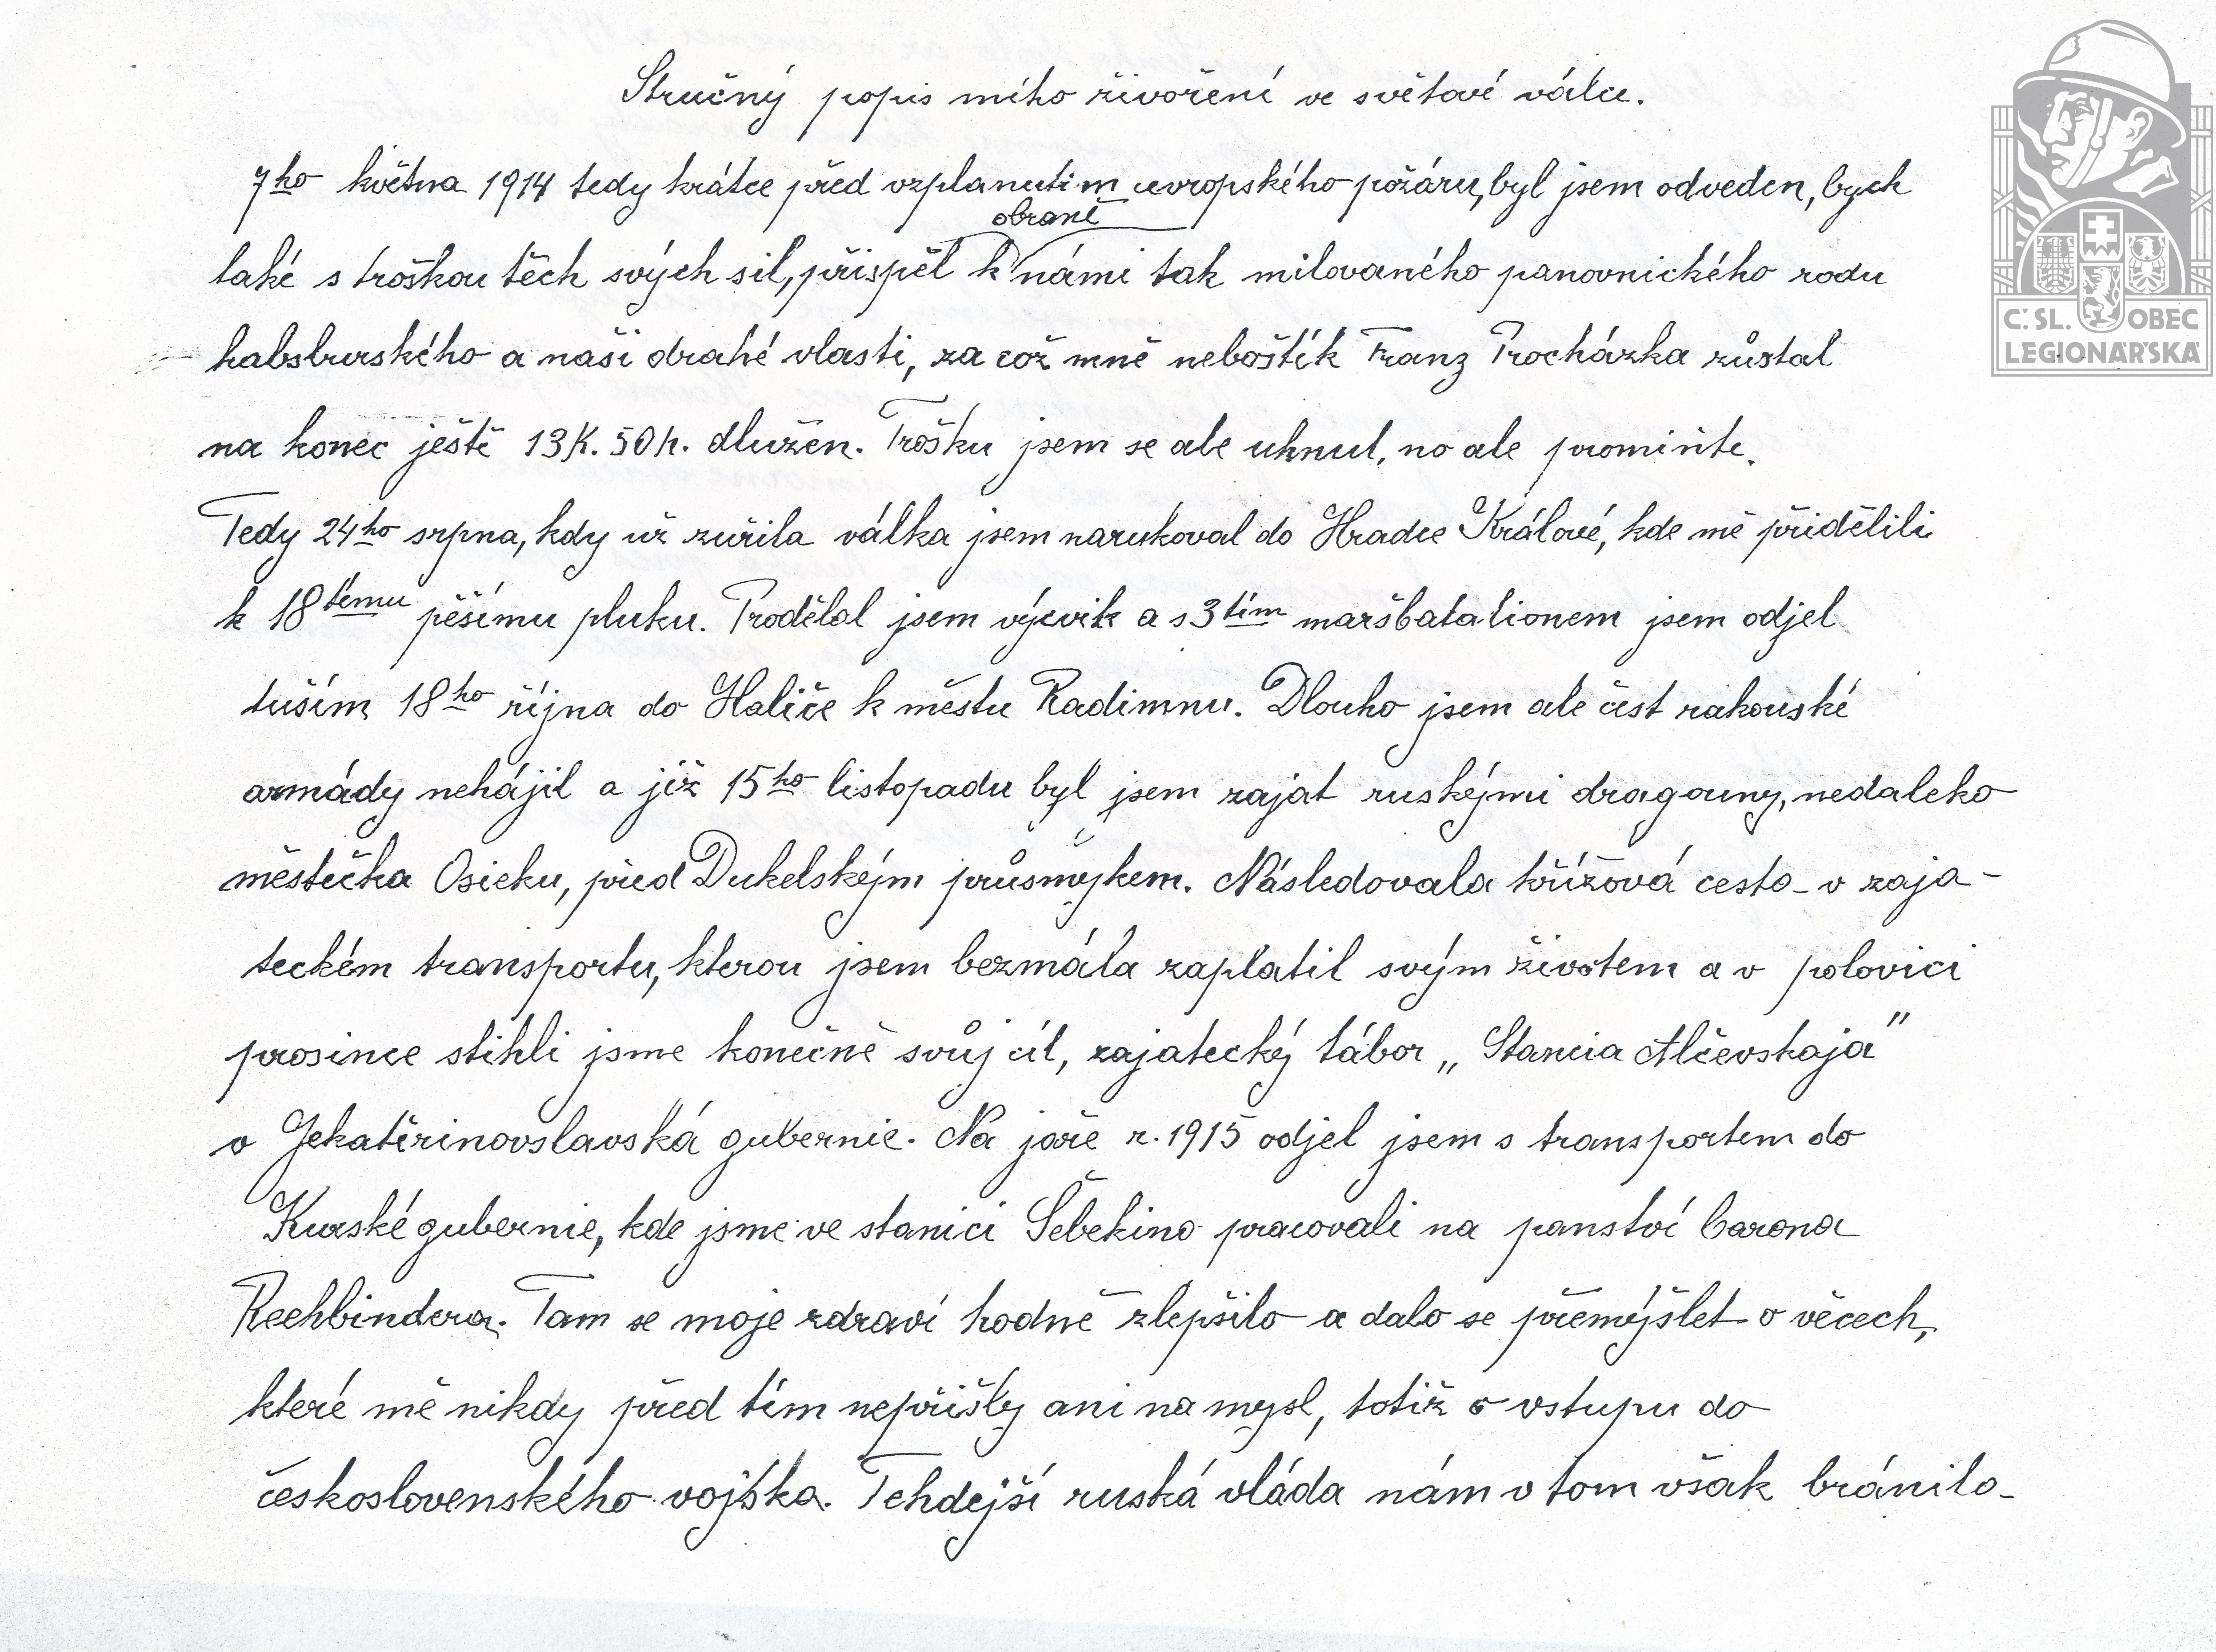 Stručný popis mího živoření ve světové válce.
7ho května 1914 tedy krátce před vzplanutím evropského požáru, byl jsem odveden, bych
obraně
také s troškou těch svých sil, přispěl k námi tak milovaného panovnického rodu
habsburského a naši drahé vlasti, za což mně neboštík Franz Procházka zůstal
na konec ještě 13K. 50h. dlužen. Trošku jsem se ale uhnul, no ale promiňte.
Tedy 24ho srpna, kdy už zuřila válka jsem narukoval do Hradce Králové, kde mě přidělili
k 18tému pěšímu pluku. Prodělal jsem výcvik a s 3tím maršbatalionem jsem odjel
tuším 18ho října do Haliče k městu Radimnu. Dlouho jsem ale čest rakouské
armády nehájil a již 15ho listopadu byl jsem zajat ruskými dragouny, nedaleko
městečka Osieku, před Dukelským průsmykem. Následovala křížová cesta v zaja-
teckém transportu, kterou jsem bezmála zaplatil svým životem a v polovici
prosince stihli jsme konečně svůj cíl, zajatecký tábor „Stancia Alčevskaja"
v Jekatěrinovslavská gubernie. Na jaře r. 1915 odjel jsem s transportem do
Kurské gubernie, kde jsme ve stanici Šebekino pracovali na panství barona
Reehbindera. Tam se moje zdraví hodně zlepšilo a dalo se přemýšlet o věcech,
které mě nikdy před tím nepřišly ani na mysl, totiž o vstupu do
československého vojska. Tehdejší ruská vláda nám v tom však bránila
Č. SL. OBEC
LEGIONÁŘSKÁ